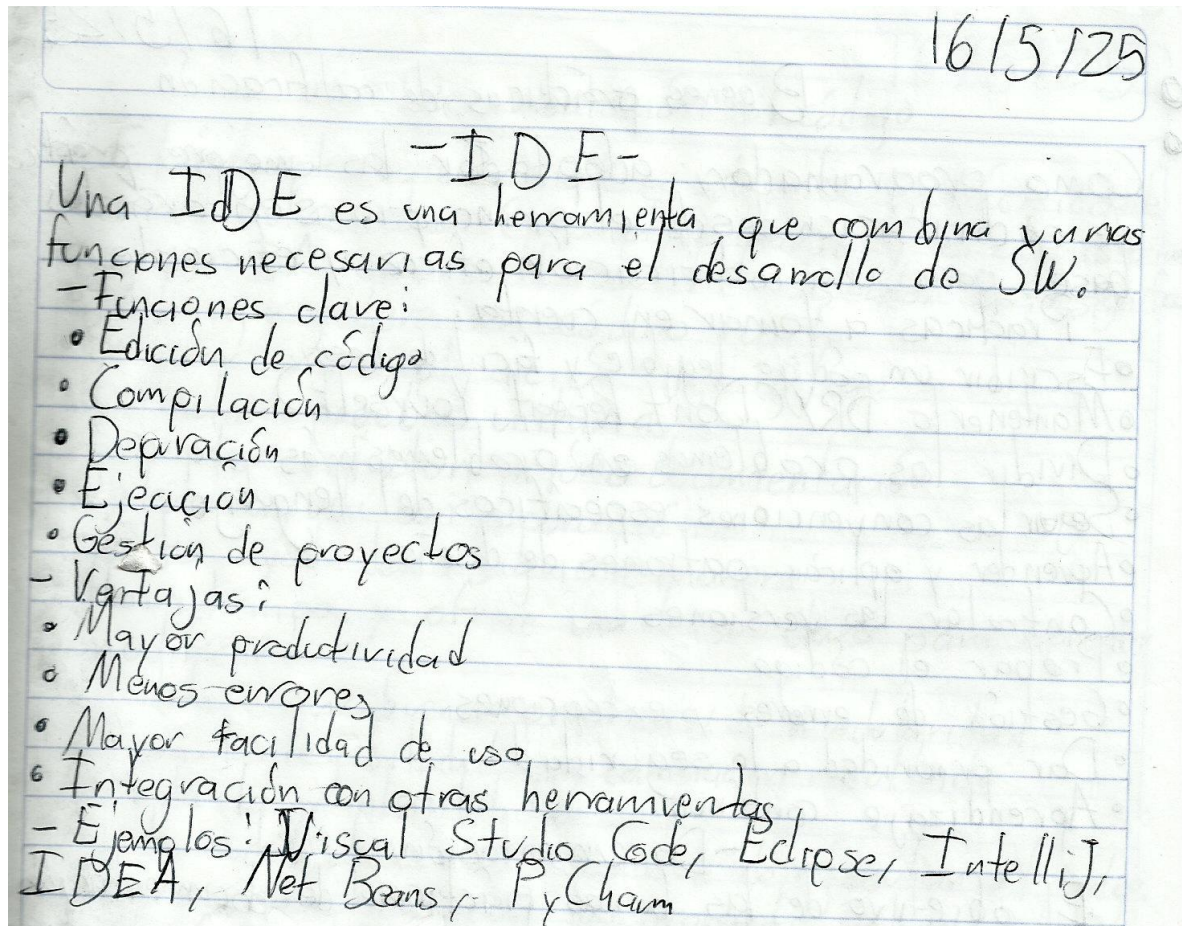 16/5/25
-IDE-
Una IDE es una herramienta que combina varias
funciones necesarias para el desarrollo de SW.
-Funciones clave:
• Edición de código
• Compilación
• Depuración
• Ejecución
• Gestión de proyectos
- Ventajas:
• Mayor productividad
• Menos errores
• Mayor facilidad de uso
• Integración con otras herramientas
- Ejemplos: Visual Studio Code, Eclipse, IntelliJ,
IDEA, Net Beans, PyCharm